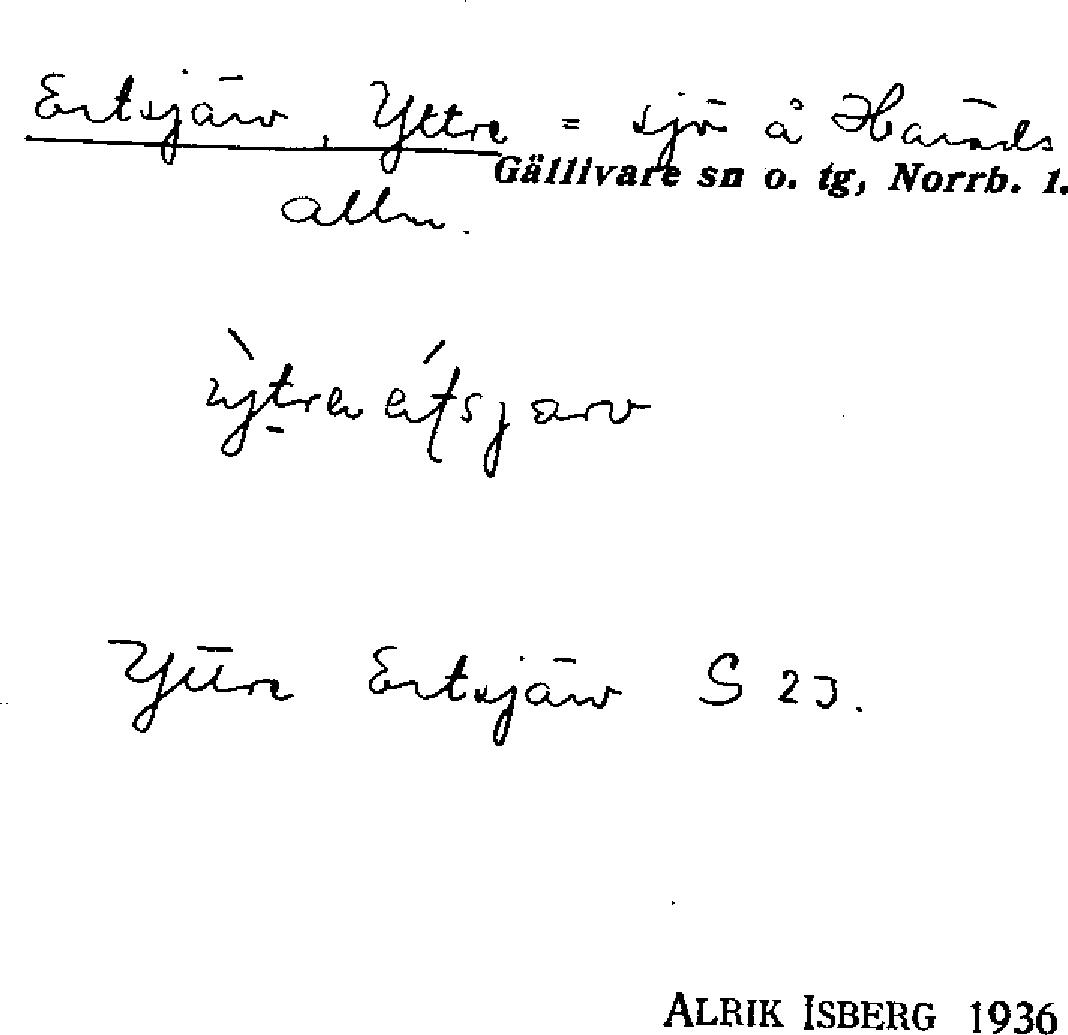 Ertsjärv, Yttre = sjö å Harads
Gällivare sn o. tg, Norrb. l.
allm.
Yttre Ertsjärv S 23.
ALRIK ISBERG 1936